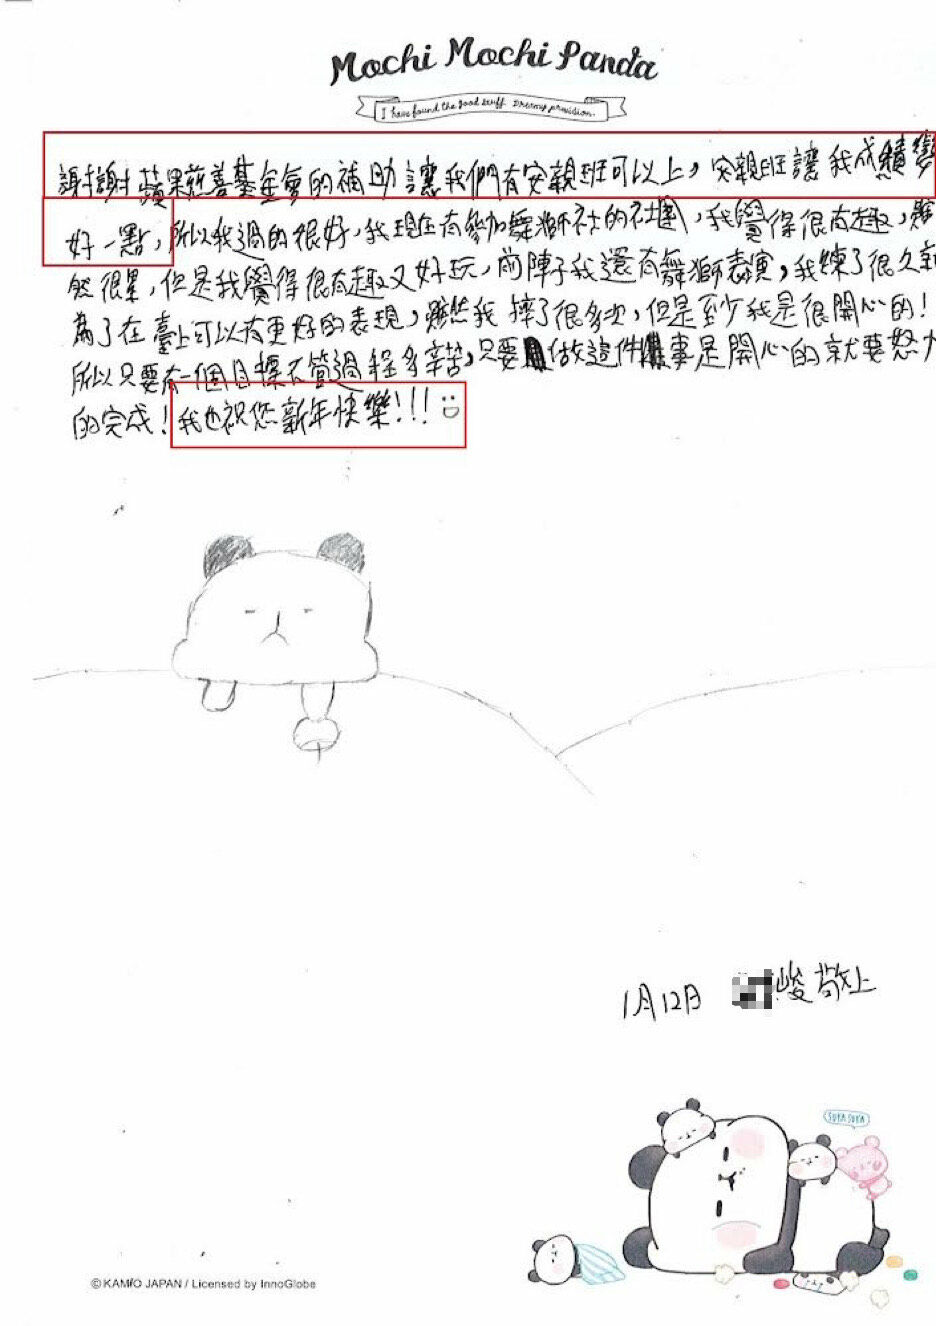 Mochi Mochi Panda
I have found the good stuff. Dreamy provision.
謝謝蘋果慈善基金會的補助讓我們有安親班可以上,安親班讓我成績變
好一點,所以我過的很好,我現在有參加舞獅社的社團,我覺得很有趣,雖
然很累,但是我覺得很有趣又好玩,前陣子我還有舞獅表演,我練了很久
為了在臺上可以有更好的表現,雖然我摔了很多次,但是至少我是很開心的!
所以只要有一個目標不管過程多辛苦,只要做這件事是開心的就要努力
的完成!我也祝您新年快樂!!!
1月12日 峻敬上
SUYA SUYA
©KAMIO JAPAN / Licensed by InnoGlobe